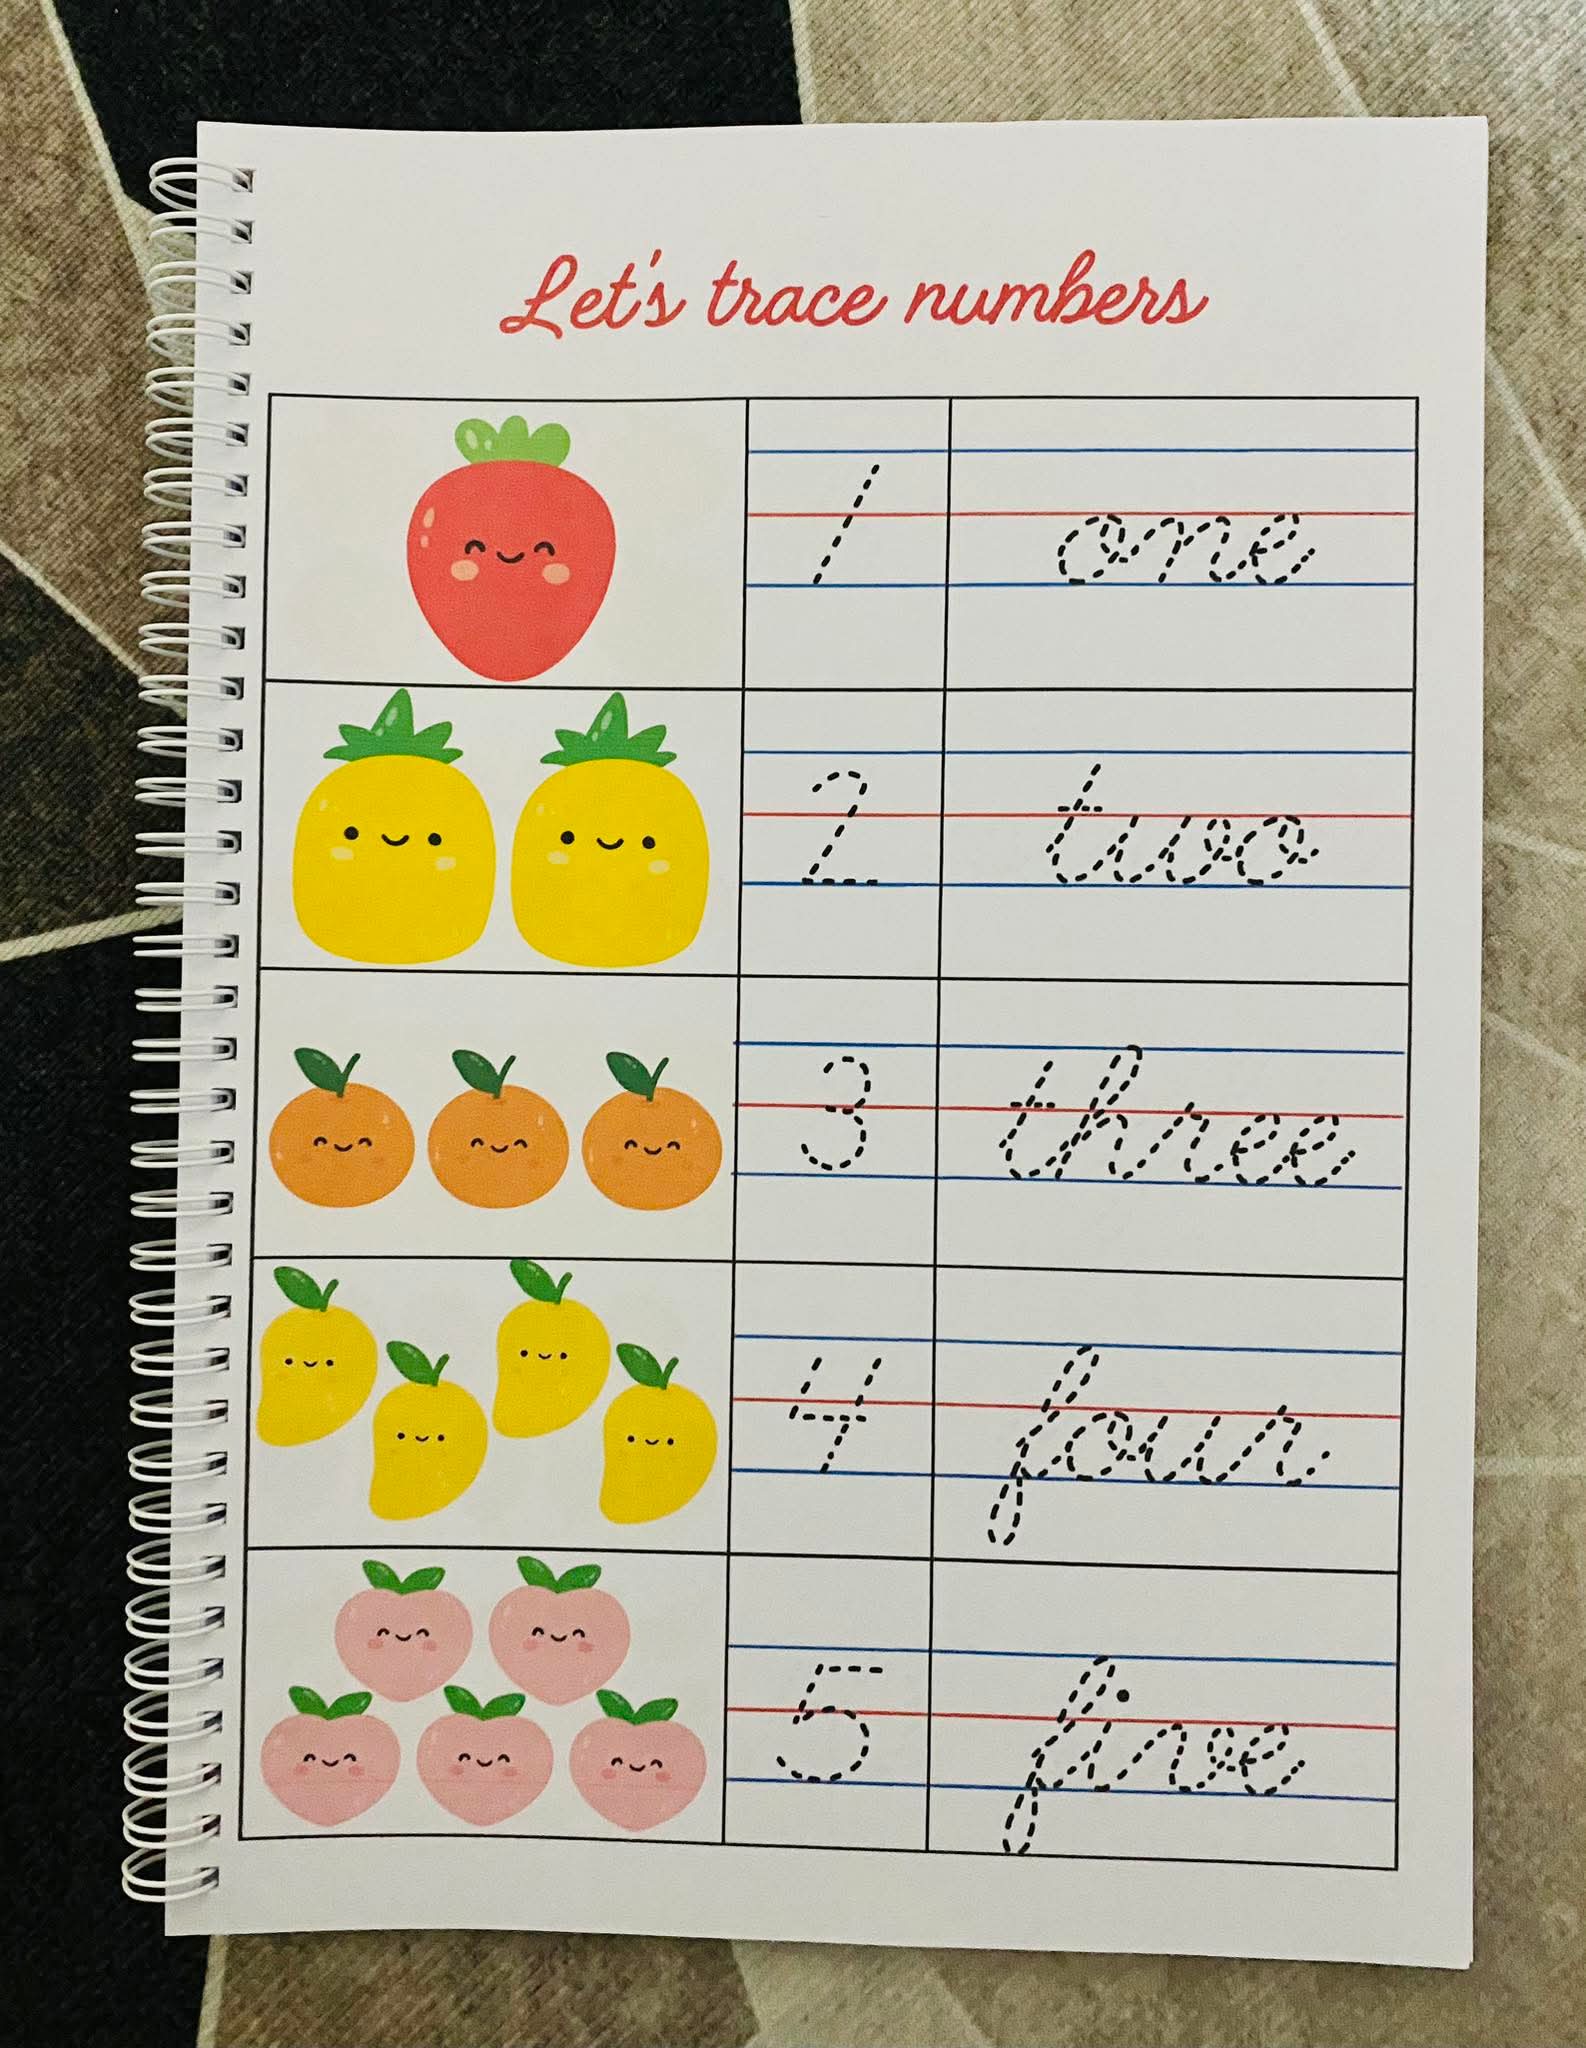 Let's trace numbers
1 one
2 two
3 three
4 four
5 five